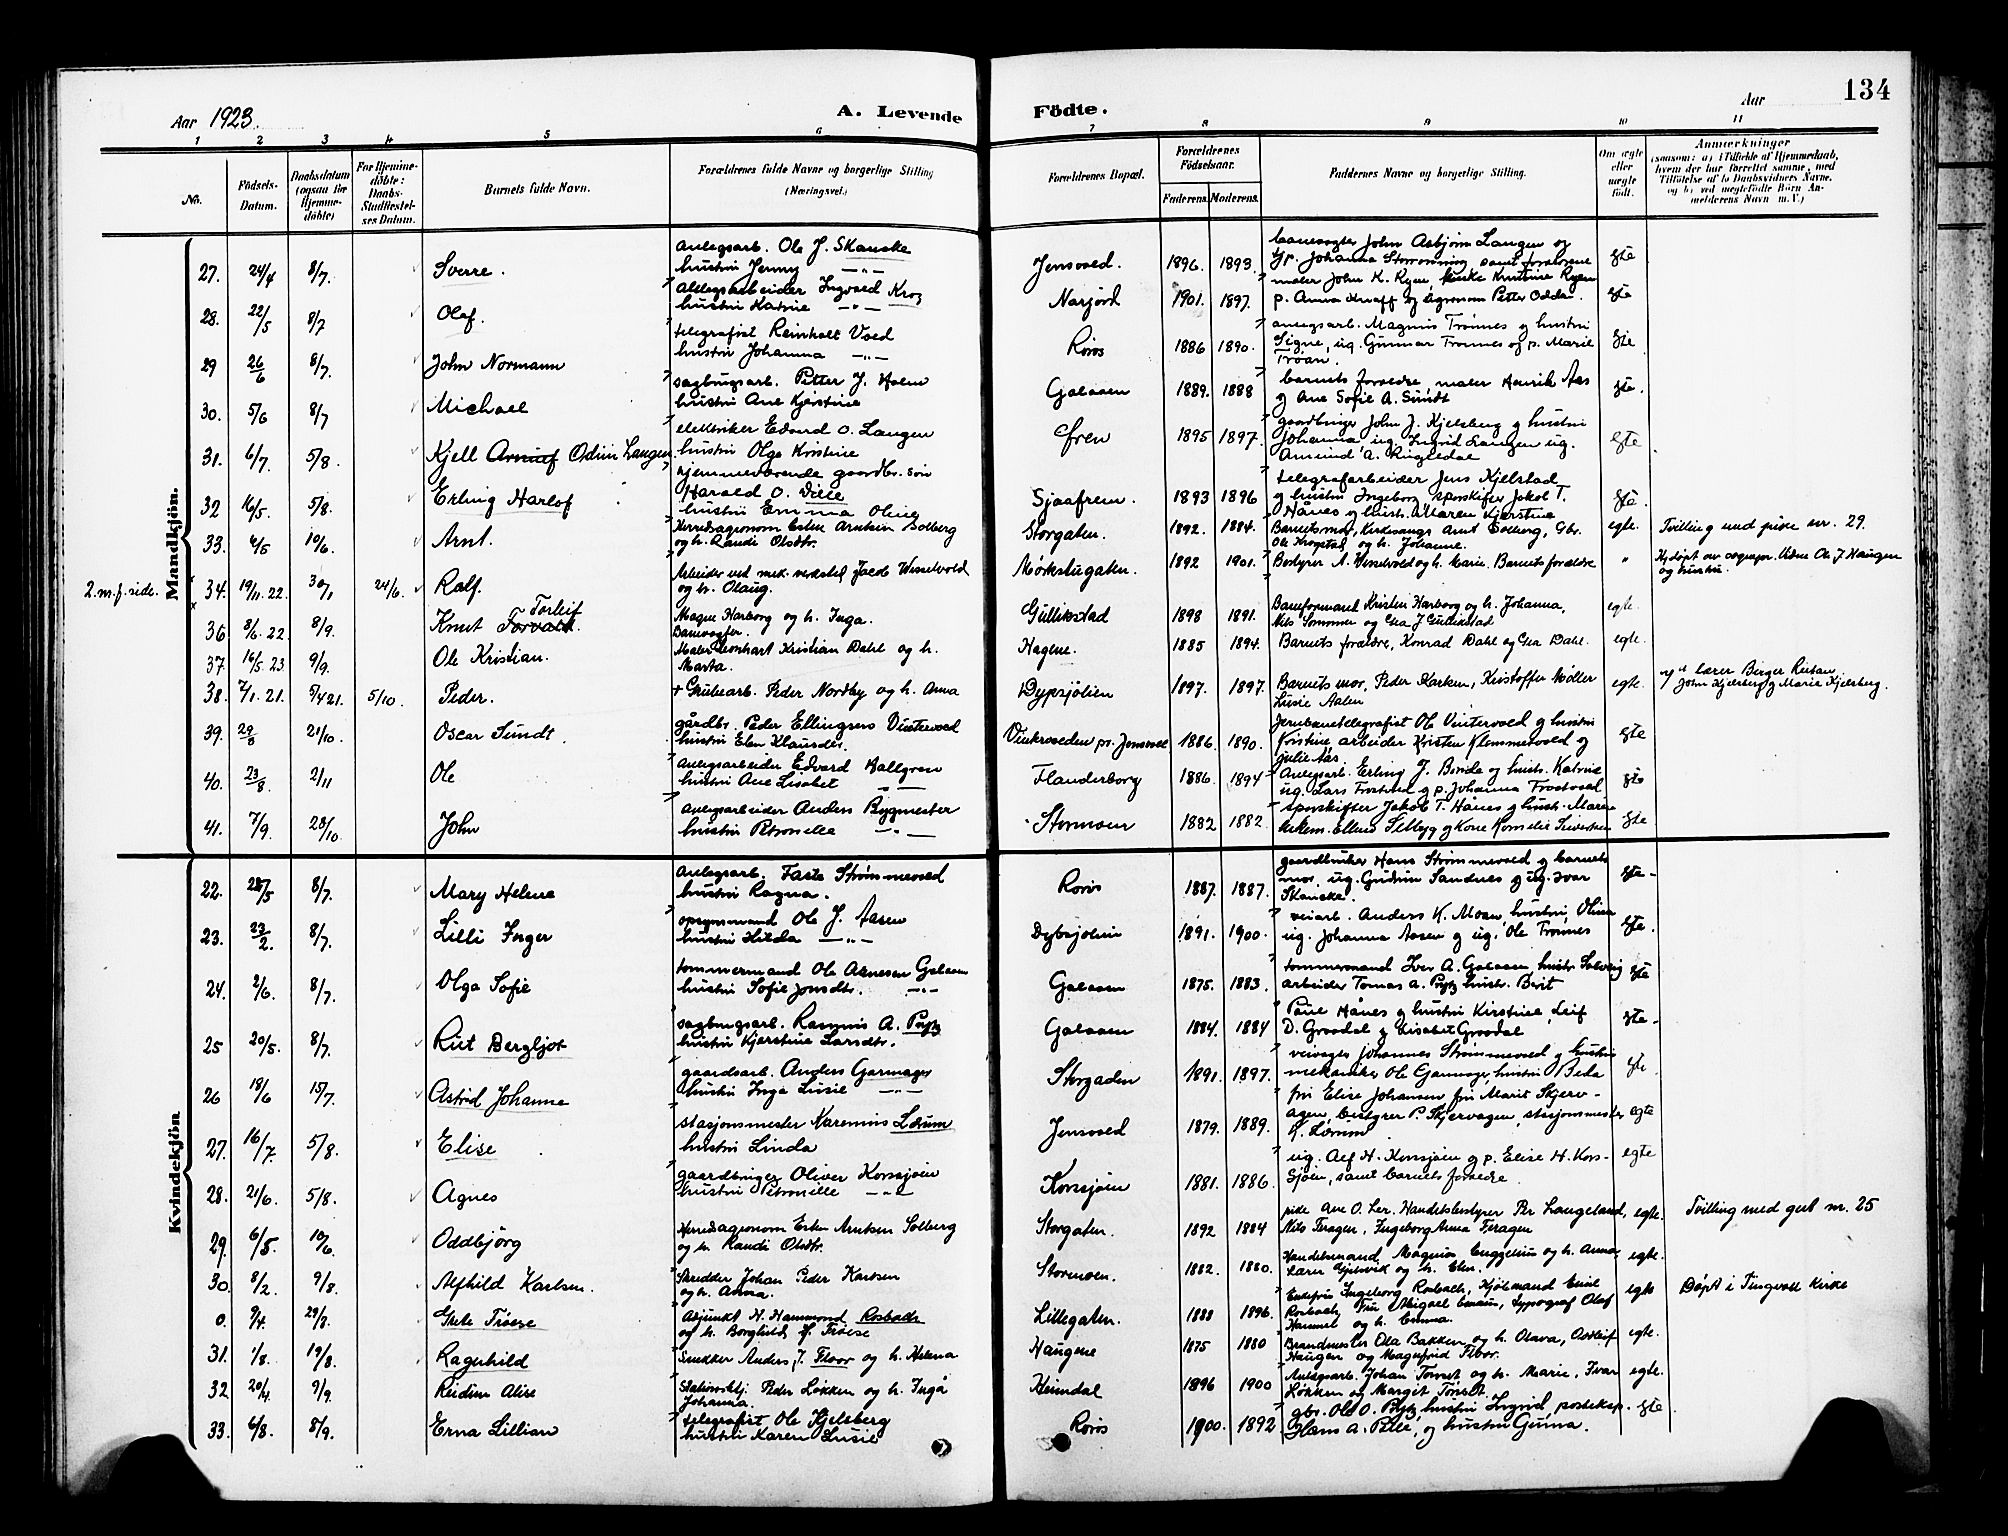 134
Aar 1923.
A. Levende Födte.
Aar
1 2 3 4 5 6 7 8 9 10 11
No.
Födsels-Datum.
Daabsdatum (ogsaa for Hjemmedöbte)
For Hjemmedöbte: Daabs-Stadfæstelses Datum.
Barnets fulde Navn.
Forældrenes fulde Navne og borgerlige Stilling (Næringsvei.)
Forældrenes Bopæl.
Forældrenes Födselsaar.
Faderens. Moderens.
Faddernes Navne og borgerlige Stilling.
Om ægte eller uægte født.
Anmærkninger
(saasom: a) i Tilfælde af Hjemmedaab,
hvem der har forrettet samme, med
Tilföielse af to Daabsvidners Navne,
og b) ved uegtefödte Börn An-
melderens Navn m. V.)
Mandkjön.
27. 24/4 8/7. Sverre. anlegsarb. Ole J. Skancke hustru Jenny —"— Jensvold. 1896. 1893. banevogter John Asbjörn Langen og samt forældrene egte
28. 22/5 8/7 Olaf. anlegsarbeider Ingvald Krog hustru Katrine —"— Narjord 1901. 1897. maler John K. Ryen, Kristine Ryen p. Anna og agronom Petter egte
29 26/6 8/7. John Normann telegrafist Reinholt Vold hustru Johanna —"— Röros 1886 1890. anlegsarb. Magnus Trönnes og hustru Signe, ug. Gunnar Trönnes og p. Marie Tröan. egte
30. 5/6 8/7 Michael sagbrugsarb. Petter J. Holm hustru Ane Kjerstine Galaaen 1889. 1888 barnets forældre, maler Henrik Aas og Ane Sofie A. Sundt egte.
31. 6/7. 5/8. Kjell Odin Langen. elektriker Edvard O. Langen hustru Olga Kristine Ören 1895 1897. gaardbruger John J. Kjelsberg og hustru Johanna, ug. Ingrid Langen ug. Amund A. Ringledal egte
32 16/5. 5/8. Erling Harlof hjemmeværende gaardbr. søn Harald O. hustru Emma Oline Sjaafrem. 1893 1896 telegrafarbeider Jens Kjelstad og hustru Ingeborg, sporskifter Jakob T. Hånes og hust. Maren Kjerstine egte.
33. 6/5 10/6. Arnt. Herredsagronom Esten Arntsen Solberg og h. Randi Olsdtr. Storgaten. 1892. 1884. Barnets mor, Arnt Solberg, Gbr. Ole Krogstad og h. Johanne. egte. Tvilling med pike nr. 29.
2. m. f. side. 34. 19/11.22. 30/1 24/6. Ralf. Arbeider ved mek. verksted Jacob Wesselvold og h. Olaug. Mörkstugaten. 1892 1901. Bestyrer A. Wesselvold og h. Marie. Barnets forældre " Hjdöpt av Ole J Haugen og hustru.
36 8/6.22. 8/9. Knut Torleif Magne Harborg og h. Inga. Banevogter. Gullikstad 1898 1891. Baneformand Kristen Harborg og h. Johanna, Nils Sommer og Gea J Gullikstad egte.
37. 16/5.23 9/9. Ole Kristian. Maler Leonhart Kristian Dahl og h. Marta. Hagene. 1885 1894. Barnets forældre, Konrad Dahl og Gea Dahl. egte.
38. 7/1.21. 21. 5/10. Peder. + Grubearb. Peder Nordby og h. Anna Dypsjölien 1897. 1897. Barnets mor, Peder Karken, Kristoffer Möller Lusie Aalen egte. lærer Berger Reitan John Kjelsberg og Marie Kjelsberg.
39. 29/3 21/10. Oscar Sundt. gårdbr. Peder Ellingsen Vintervold hustru Elen Klausdtr. pr. Jensvold 1886. 1890. Jernbanetelegrafist Ole Vintervold og hustru Kristine arbeider Kristen Klemmetvold og Julie Aas egte
40. 23/8. 2/11 Ole anlegsarbeider Edvard Hallgren hustru Ane Lisabet —"— Flanderborg 1886. 1894 Anlegsarb. Erling J. og hustr. Katrine ug. Lars Trostvold og p. Johanna Trostvold egte
41. 7/9. 28/10. John anlegsarbeider Anders Bygmester hustru Petronelle —"— Stormoen 1882 1882. sporskifter Jakob T. Hånes og hust. Maren og Kone Kornelie Sivertsen egte
Kvindekjön
22. 28/5 8/7. Mary Helene anlegsarb. Faste Strömmevold hustru Ragna. Röros 1887. 1887. gaardbruker Hans Strömmevold og barnets mor, ug. Gudrun Sandnes og ug. Ivar Skancke. egte
23. 23/2. 8/7. Lilli Inger opsynsmand Ole J. Aasen hustru Hilda —"— Dybsjölien 1891. 1900. veiarb. Anders K. Moen hustru, Olina ug. Johanna Aasen og ug. Ole Trönnes egte.
24. 2/6. 8/7. Olga Sofie tömmermand Ole Arnesen Galaaen hustru Sofie Jonsdtr. —"— Galaaen 1875. 1883. tömmermand Iver A. Galaaen, hustr. Solveig arbeider Tomas A. Prytz hustr. Berit egte
25 20/5. 8/7. Rut Bergljot sagbrugsarb. Rasmus A. Prytz hustru Kjerstine Larsdtr. Galaaen 1884. 1884 Paul Hånes og hustru Kirstine, Leif D. Groodal og Lisabet Groodal egte
26 18/6 15/7. Astrid Johanne gaardsarb. Anders Garmager hustru Inga Lusie —"— Storgaden 1891. 1897. veivogter Johannes Strömmevold og hustru mekaniker Ole Garmager, hustru Beda egte.
27. 16/7. 5/8. Elise stasjonsmester Karenius Lörum hustru Linda Jensvold 1879. 1889. fru Elise Johansen fru Marit Skjervagen, bestyrer P. Skjervagen, stasjonsmester K. Lörum egte
28. 21/6. 5/8. Agnes gaardbruger Oliver Korssjöen hustru Petronille —"— Korssjöen 1881. 1886. ug. Alf H. Korssjöen og p. Elise H. Korssjöen, samt barnets forældre. egte
29. 6/5. 10/6. Oddbjörg Herredsagronom Esten Arntsen Solberg og h. Randi Olsdtr. Storgaten. 1892 1884 pike Ane O. Ler. Handelsbestyrer Per Langeland, Nils Feragen, Ingeborg Anna Feragen egte. Tvilling med gut nr. 25
30. 8/2. 9/8. Alfhild Karlsen. Skrædder Johan Peder Karlsen og h. Anna. Stormoen. 1882. 1880. Handelsmand Magnus Engzelius og h. Anna, Lærer Gjelsvik og h. Elen. egte.
0. 9/4. 29/8. Grete Tröese Adjunkt H. Hammond Rosbach og h. Borghild f. Tröese Lillegaten. 1888 1896. Enkefru Ingeborg Rosbach, Kjöbmand Emil Rosbach, Fru Abigael typograf Olaf Hammel og h. Emma. egte Döpt i Tingvoll Kirke
31. 1/8. 19/8. Ragnhild Snekker Anders J. Floor og h. Helena Haugene 1875 1880 Brandmester Ola Bakken og h. Olava, Astleif Haugen og Magnfrid Floor. egte.
32 20/4. 9/9. Reidun Alise Stationsbtj. Peder Lökken og h. Inga Johanna. Heimdal 1896 1900 Anlegsarb. Johan Tönset og h. Marie, Ivar Lökken og Margit Tönset. egte.
33. 6/8. 8/9. Erna Lillian telegrafist Ole Kjelsberg hustru Karen Lusie Röros 1900. 1892 gbr. Ole O. Prytz, hustru Ingrid, postekspd. Hans A. og hustru Gunna. egte